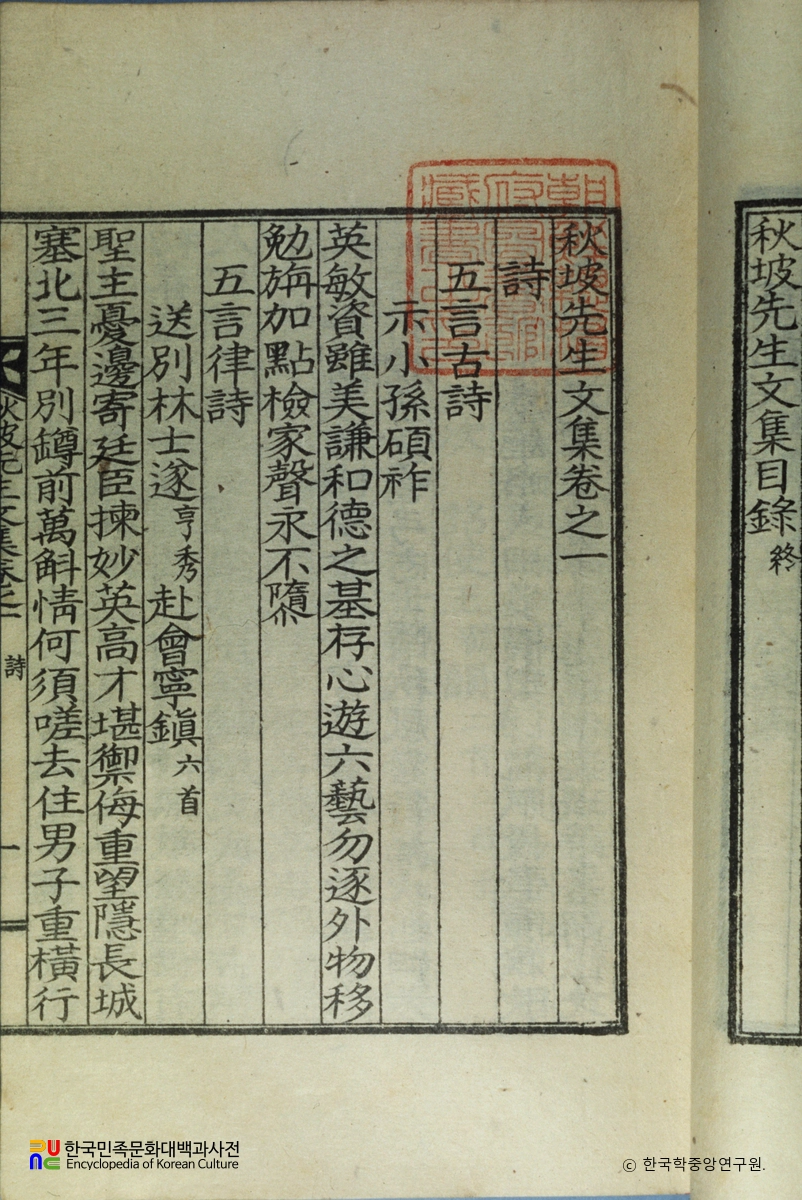 秋坡先生文集目錄 終
秋坡先生文集卷之一
詩
五言古詩
示小孫碩祚
英敏資雖美謙和德之基存心遊六藝勿逐外物移
勉旃加點檢家聲永不隳
五言律詩
送別林士遂 亨秀 赴會寧鎭 六首
聖主憂邊寄廷臣揀妙英高才堪禦侮重望隱長城
塞北三年別罇前萬斛情何須嗟去住男子重橫行
秋坡先生文集卷之一 詩 一
한국민족문화대백과사전
Encyclopedia of Korean Culture
ⓒ 한국학중앙연구원.